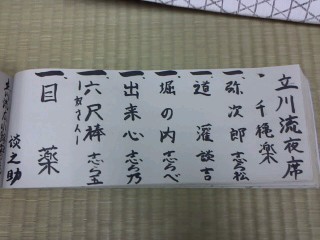 立川流夜席
・千穐楽
一、弥次郎 志ら松
一、道灌 談吉
一、堀の内 志らべ
一、出来心 志ら乃
一、六尺棒 志ら玉
一、目薬
談之助